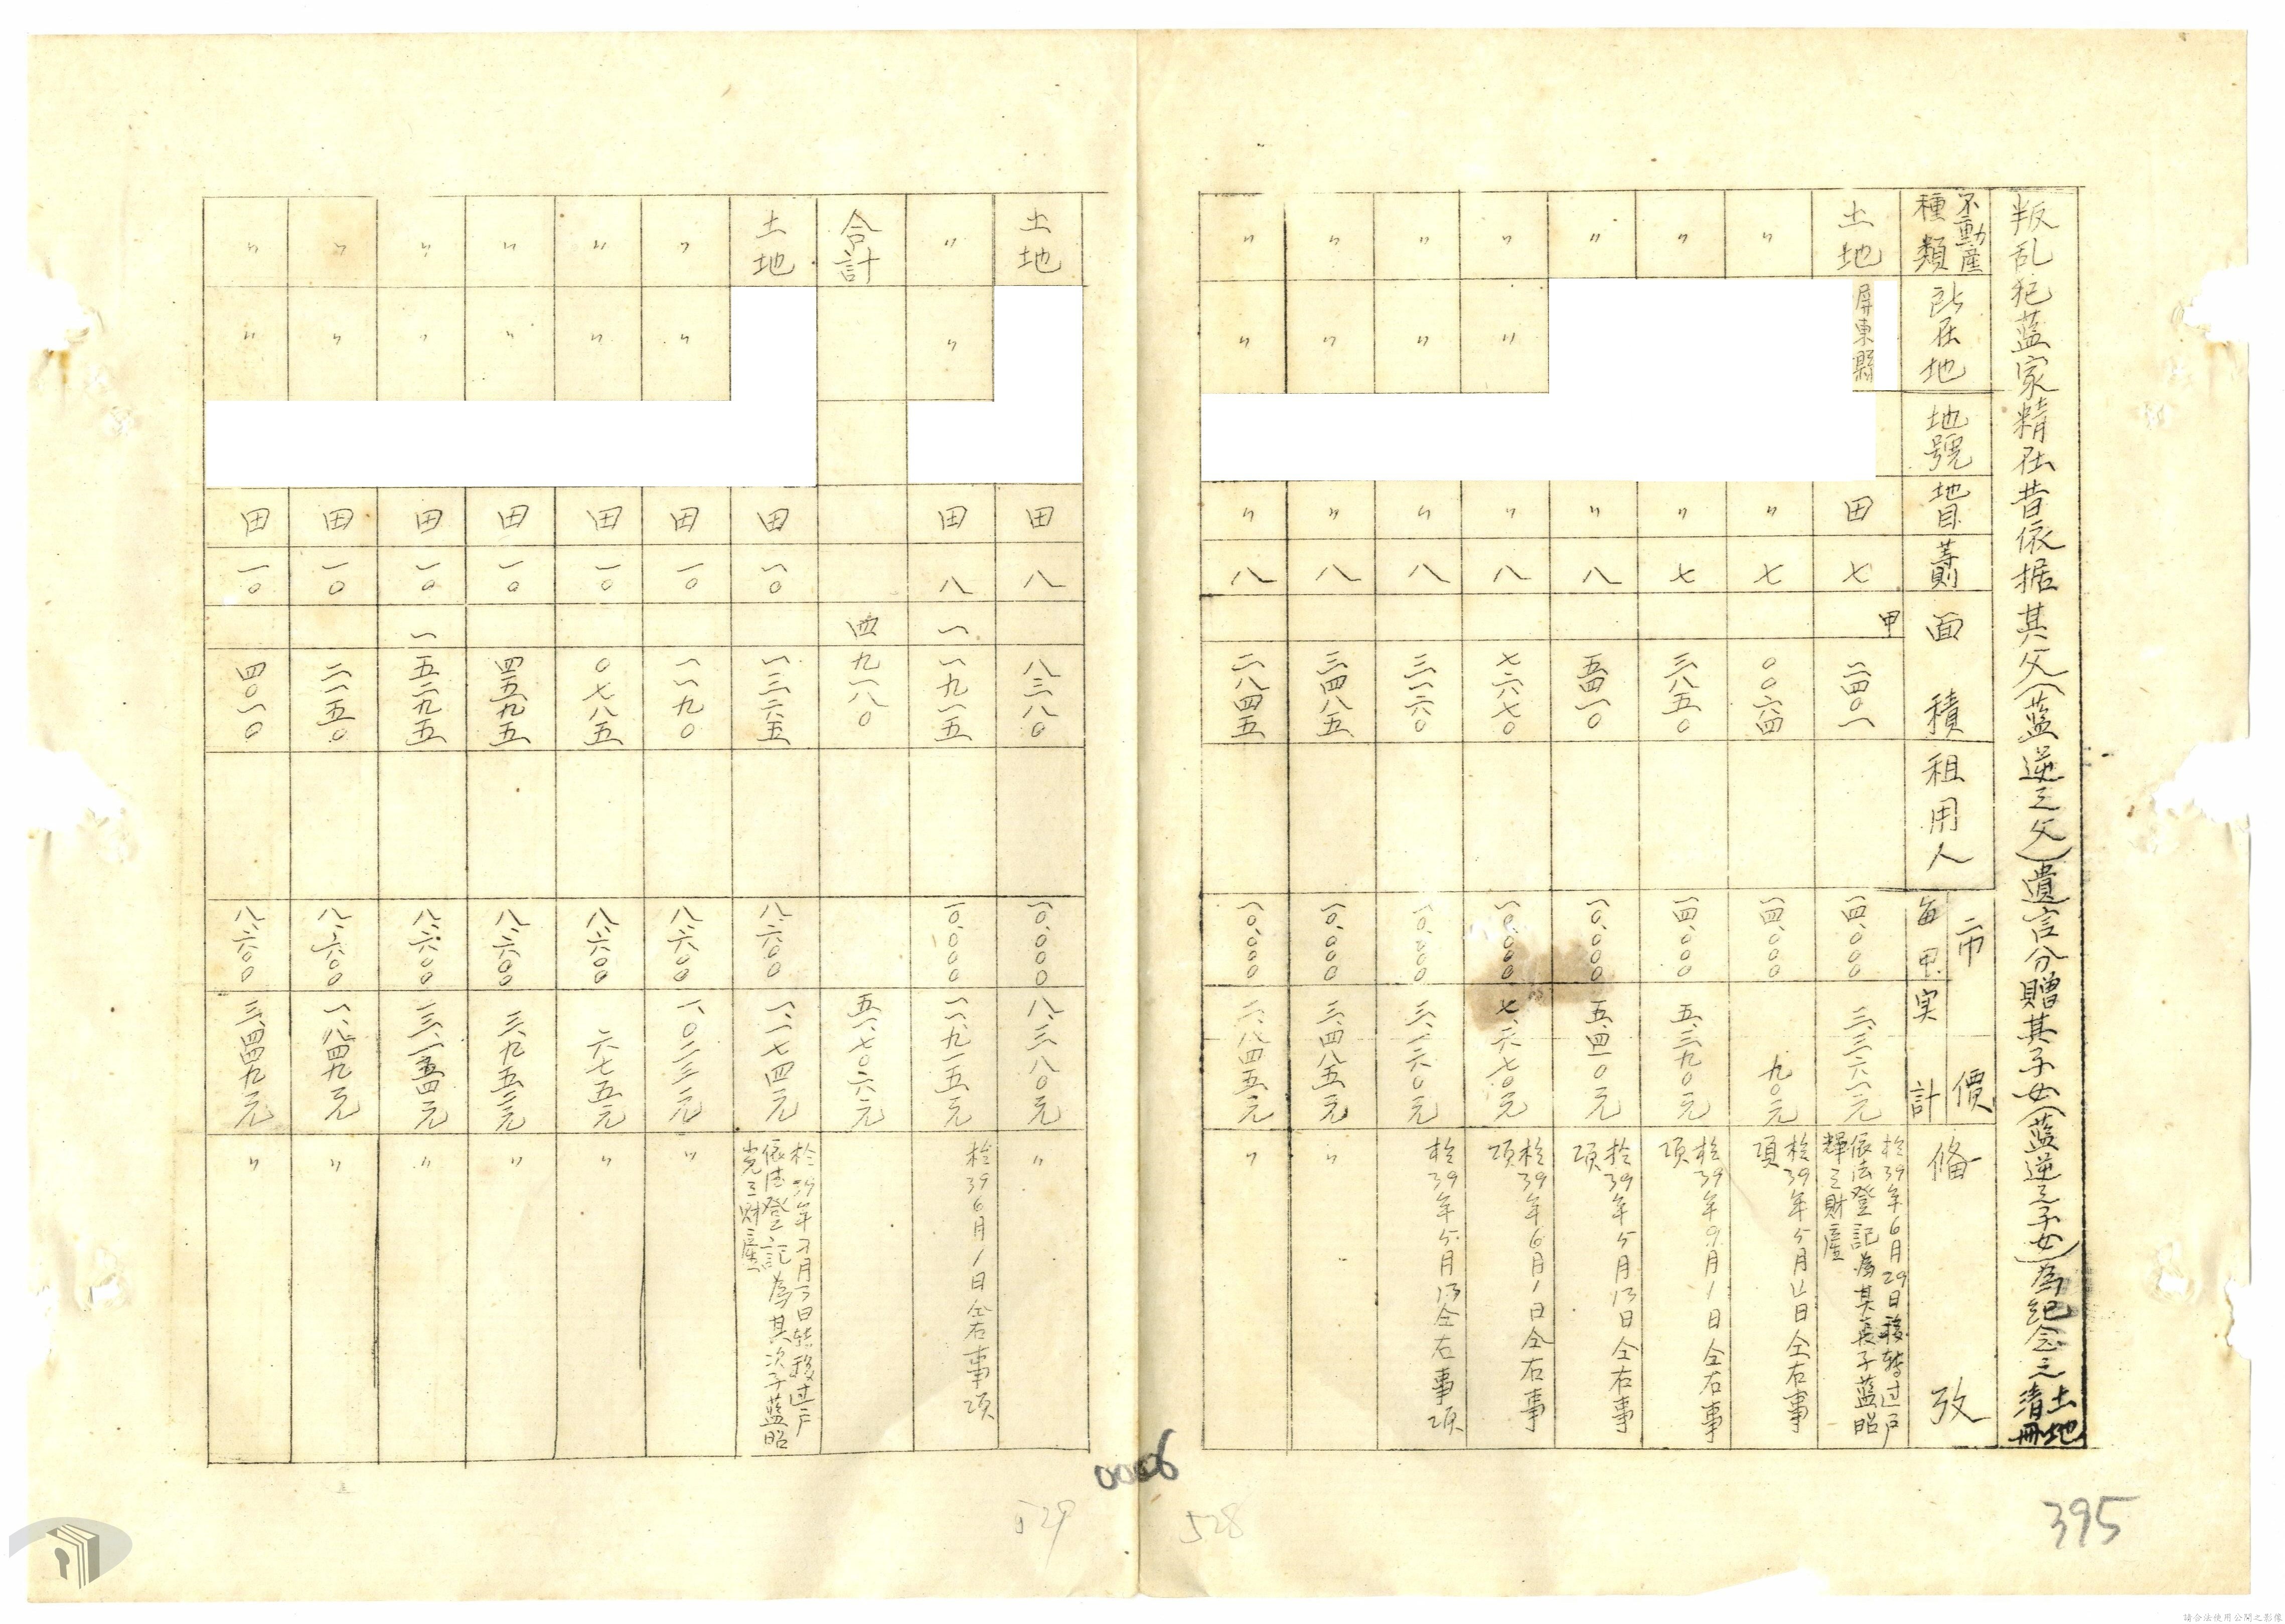 叛乱犯蓝家精在昔依据其父(蓝逆之父)遺言分贈其子女(蓝逆之子女)為紀念之土地清冊
不動產種類 所在地 地號 地目 等則 面積 租用人 市價 每甲 实計 俻攷
土地 屏東縣 田 七 甲 二四〇一 一四.〇〇〇 三.三六一元 於39年6月29日移轉过户依法登記為其長子蓝昭輝之財產
〃 〃 七 〇〇六四 一四.〇〇〇 九〇元 於39年5月 日仝右事項
〃 〃 七 三八五〇 一四.〇〇〇 五.三九〇元 於39年9月1日仝右事項
〃 〃 八 五四一〇 一〇.〇〇〇 五.四一〇元 於39年5月13日仝右事項
〃 〃 〃 八 七六七〇 一〇.〇〇〇 七.六七〇元 於39年6月1日仝右事項
〃 〃 〃 八 三一六〇 一〇.〇〇〇 三.一六〇元 於39年5月13仝右事項
〃 〃 〃 八 三四八五 一〇.〇〇〇 三.四八五元 〃
〃 〃 〃 八 二八四五 一〇.〇〇〇 二.八四五元 〃
土地 田 八 八三八〇 一〇.〇〇〇 八.三八〇元 〃
〃 〃 田 八 一 一九一五 一〇.〇〇〇 一一.九一五元 於39 6月1日仝右事項
合計 四 九一八〇 五一.七〇六元
土地 田 一〇 一三六五 八.六〇〇 一.一七四元 於39年 月 日转移过户依法登記為其次子藍昭光之財產
〃 〃 田 一〇 一一九〇 八.六〇〇 一.〇二三元 〃
〃 〃 田 一〇 〇七八五 八.六〇〇 六七五元 〃
〃 〃 田 一〇 四五九五 八.六〇〇 三.九五二元 〃
〃 〃 田 一〇 一 五二九五 八.六〇〇 一三.一五四元 〃
〃 〃 田 一〇 二一五〇 八.六〇〇 一.八四九元 〃
〃 〃 田 一〇 四〇一〇 八.六〇〇 三.四四九元 〃
0006
529
528
395
請合法使用公開之影像